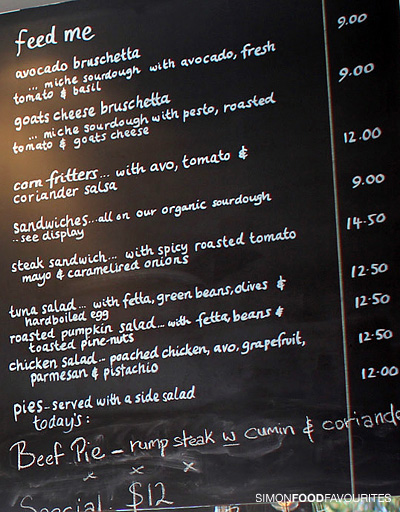 feed me
avocado bruschetta 9.00
... miche sourdough with avocado, fresh
tomato & basil
goats cheese bruschetta 9.00
... miche sourdough with pesto, roasted
tomato & goats cheese
corn fritters... with avo, tomato & 12.00
coriander salsa
sandwiches...all on our organic sourdough 9.00
..see display
steak sandwich... with spicy roasted tomato 14.50
mayo & caramelired onions
tuna salad... with fetta, green beans, olives & 12.50
hardboiled egg
roasted pumpkin salad... with fetta, beans & 12.50
toasted pine-nuts
chicken salad... poached chicken, avo, grapefruit, 12.50
parmesan & pistachio
pies...served with a side salad 12.00
today's:
Beef Pie - rump steak w cumin & coriande
x x x
Special: $12
SIMONFOODFAVOURITES